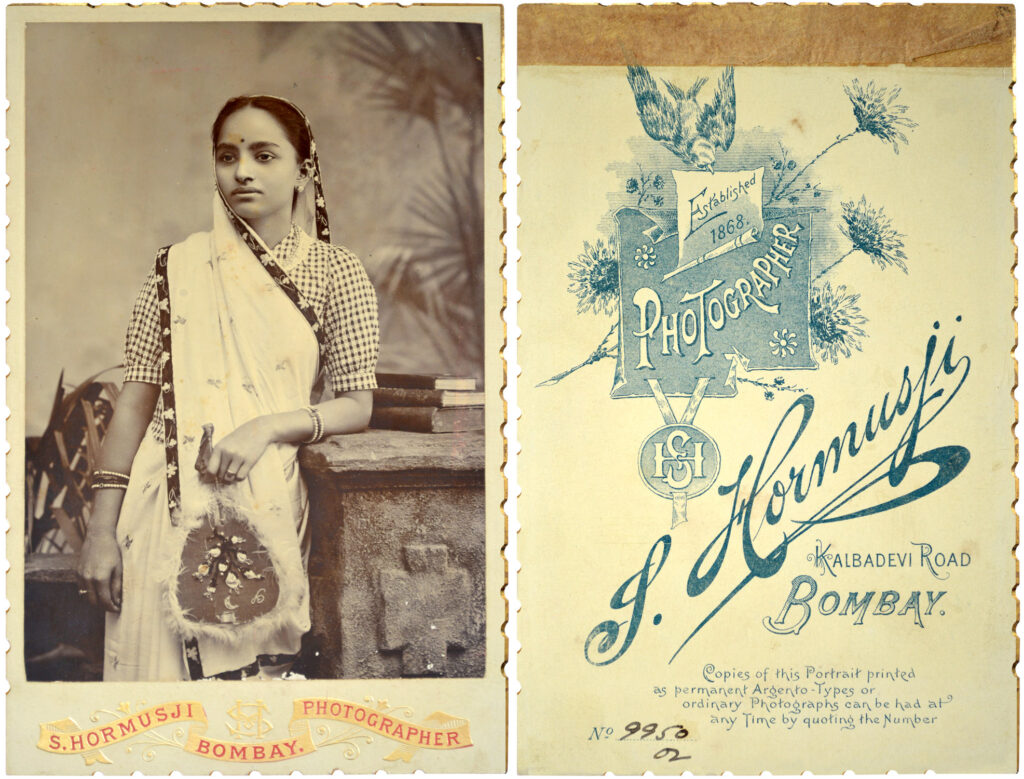 S. HORMUSJI
SH
PHOTOGRAPHER
BOMBAY.
Established
1868.
PHOTOGRAPHER
SH
S. Hormusji
KALBADEVI ROAD
BOMBAY.
Copies of this Portrait printed
as permanent Argento-Types or
ordinary Photographs can be had at
any Time by quoting the Number
No 9950